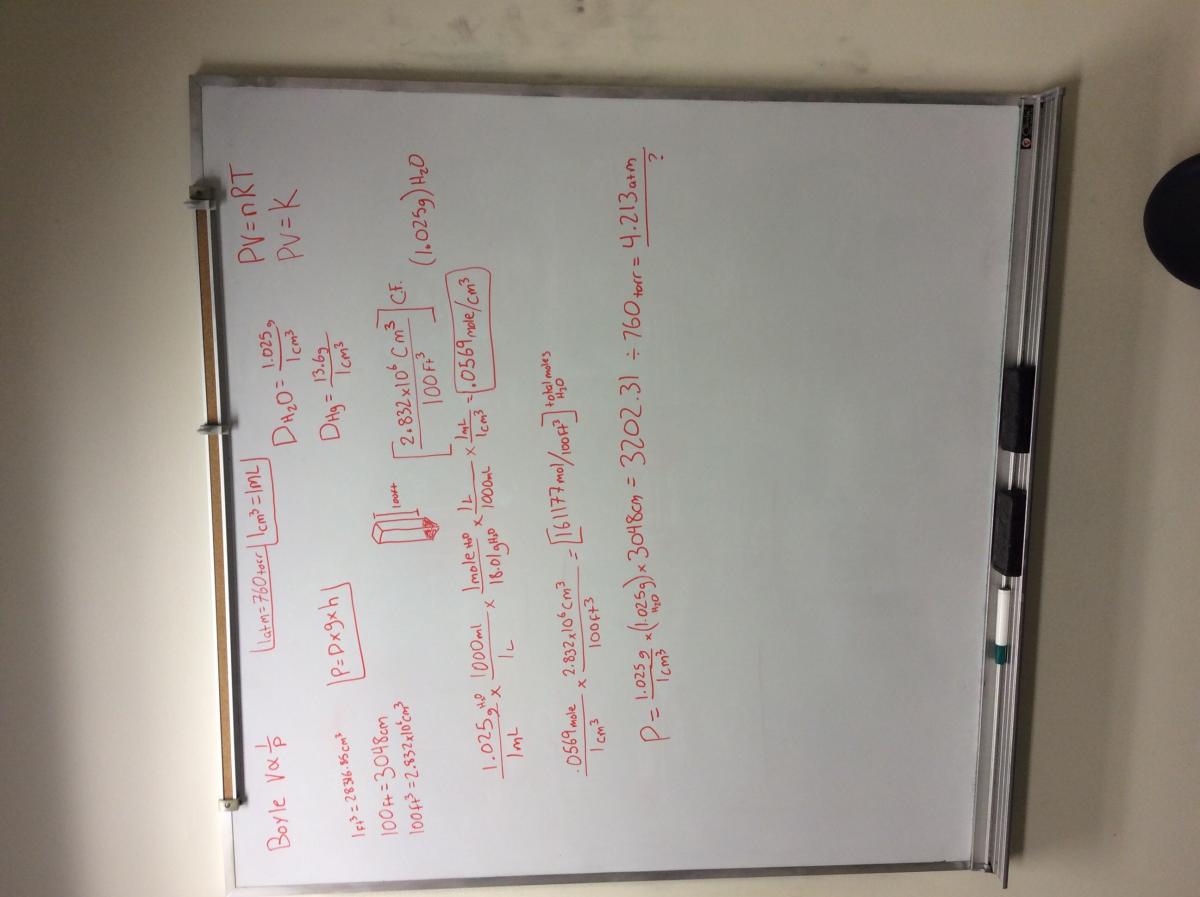 Boyle V∝ 1/P   1atm=760torr   1cm³=1mL   DH₂O= 1.025g/1cm³   PV=nRT
P=D×g×h   DHg= 13.6g/1cm³   PV=K
1ft³=28316.85cm³
100ft=3048cm   100ft   [2.832×10⁶cm³/100ft³] C.F.   (1.025g)H₂O
100ft³=2.832×10⁶cm³
1.025g H₂O/1mL × 1000ml/1L × 1mole H₂O/18.01g H₂O × 1L/1000mL × 1mL/1cm³ = .0569mole/cm³
.0569mole/1cm³ × 2.832×10⁶cm³/100ft³ = [161177mol/100ft³] total moles H₂O
P= 1.025g/1cm³ × (1.025g)H₂O × 3048cm = 3202.31 ÷ 760torr = 4.213atm
?